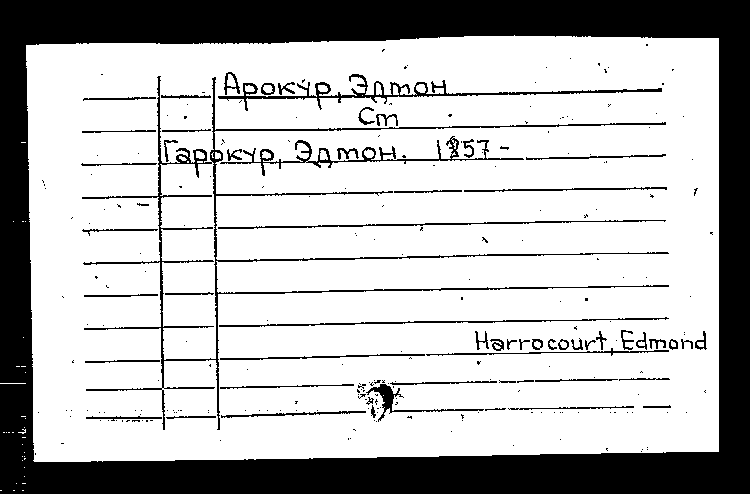 Арокур, Эдмон
Cm
Гарокур, Эдмон. 1857 -
Harrocourt, Edmond